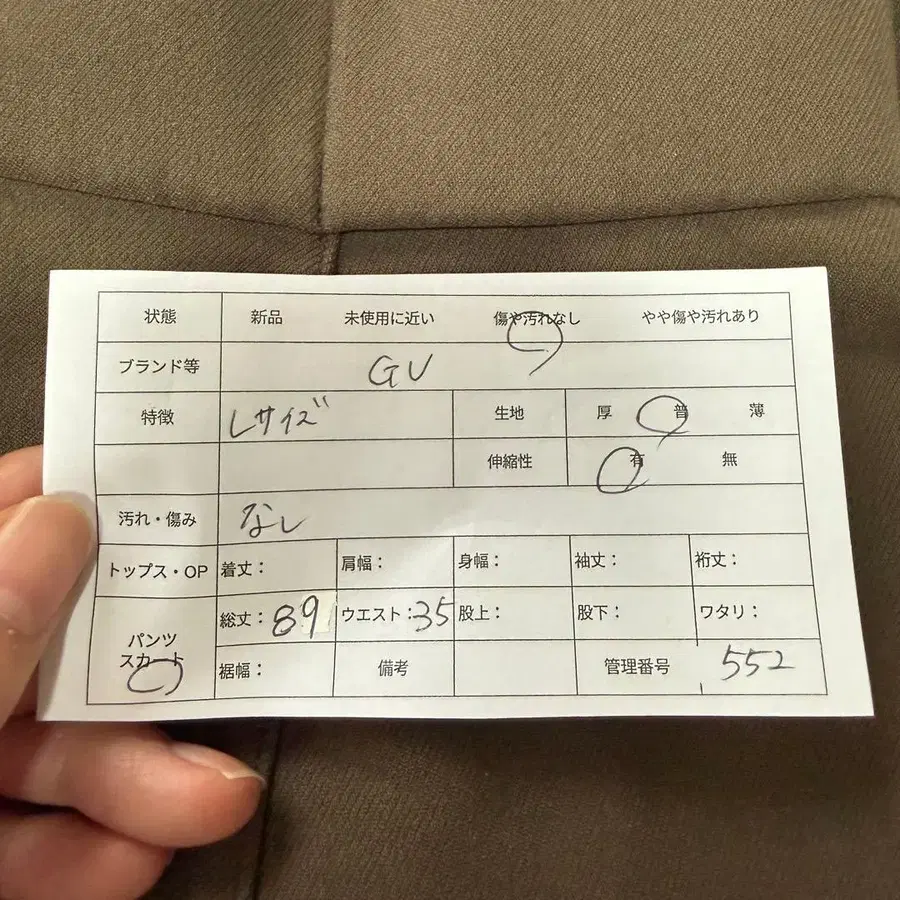 状態 新品 未使用に近い 傷や汚れなし やや傷や汚れあり
ブランド等 GU
特徴 Lサイズ 生地 厚 普 薄
伸縮性 有 無
汚れ・傷み なし
トップス・OP 着丈: 肩幅: 身幅: 袖丈: 裄丈:
パンツ
スカート
総丈: 89 ウエスト:35 股上: 股下: ワタリ:
裾幅: 備考 管理番号 552